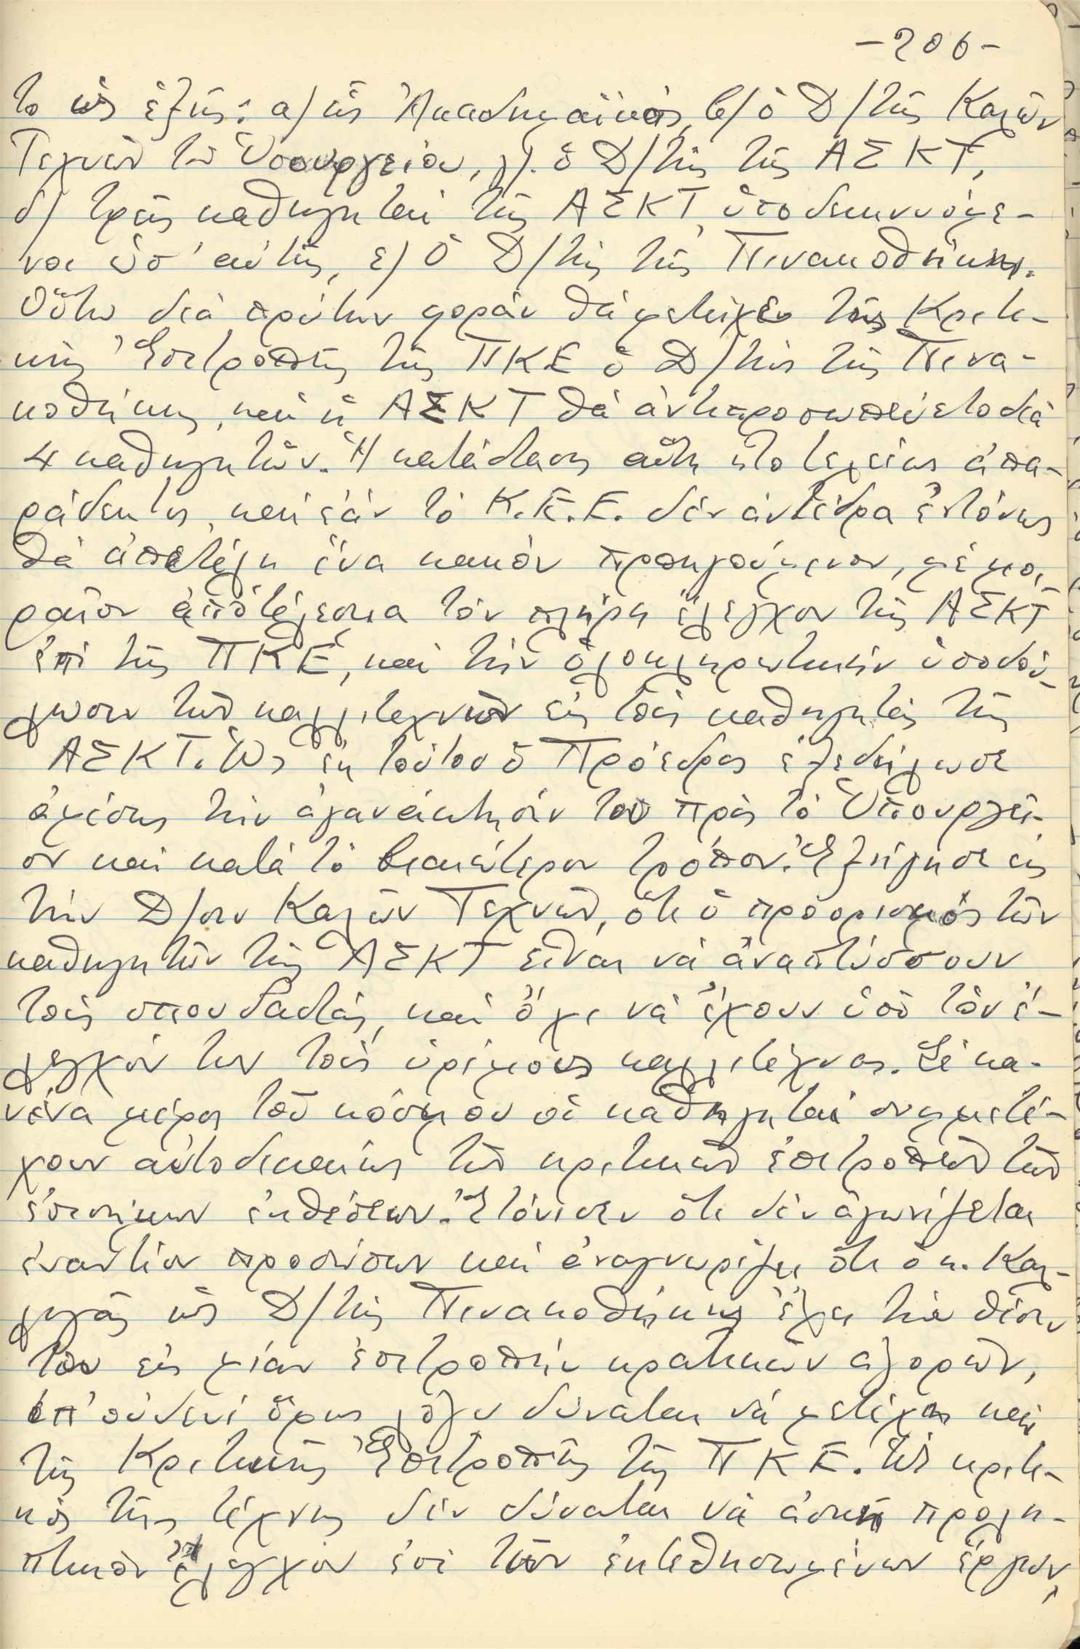 -206-
το ὡς ἑξῆς: α) εἷς Ἀκαδημαϊκός, β) ὁ Δ/τής Καλῶν
Τεχνῶν τοῦ Ὑπουργείου, γ). ὁ Δ/τής τῆς ΑΣΚΤ,
δ) τρεῖς καθηγηταί τῆς ΑΣΚΤ ὑποδεικνυόμε-
νοι ὑπ' αὐτῆς, ε) ὁ Δ/τής τῆς Πινακοθήκης.
Οὕτω διά πρώτην φοράν θά μετεῖχε τῆς Κριτι-
κῆς Ἐπιτροπῆς τῆς ΠΚΕ ὁ Δ/τής τῆς Πινα-
κοθήκης, καί ἡ ΑΣΚΤ θά ἀντιπροσωπεύετο διά
4 καθηγητῶν. Ἡ κατάστασις αὕτη ἦτο τελείως ἀπα-
ράδεκτος, καί ἐάν τό Κ.Ε.Ε. δέν ἀντέδρα ἐντόνως
θά ἀπετέλη ἕνα κακόν προηγούμενον, μέ μοι-
ραῖον ἀποτέλεσμα τόν πλήρη ἔλεγχον τῆς ΑΣΚΤ
ἐπί τῆς ΠΚΕ, καί τήν ὁλοκληρωτικήν ὑποδού-
λωσιν τῶν καλλιτεχνῶν εἰς τούς καθηγητάς τῆς
ΑΣΚΤ. Ὡς ἐκ τούτου ὁ Πρόεδρος ἐξεδήλωσε
ἀμέσως τήν ἀγανάκτησίν του πρός τό Ὑπουργεῖ-
ον καί κατά τό βιαιότερον τρόπον. Ἐξήγησε εἰς
τήν Δ/σιν Καλῶν Τεχνῶν, ὅτι ὁ προορισμός τῶν
καθηγητῶν τῆς ΑΣΚΤ εἶναι νά ἀναπτύσσουν
τούς σπουδαστάς, καί ὄχι νά ἔχουν ὑπό τόν ἔ-
λεγχόν των τούς ὡρίμους καλλιτέχνας. Σέ κα-
νένα μέρος τοῦ κόσμου οἱ καθηγηταί συμμετέ-
χουν αὐτοδικαίως τῶν κριτικῶν ἐπιτροπῶν τῶν
ἐπισήμων ἐκθέσεων. Ἐτόνισεν ὅτι δέν ἀγωνίζεται
ἐναντίον προσώπων καί ἀναγνωρίζει ὅτι ὁ κ. Καλ-
λιγᾶς ὡς Δ/τής Πινακοθήκης ἔχει τήν θέσιν
του εἰς μίαν ἐπιτροπήν κρατικῶν ἀγορῶν,
ἐπ' οὐδενί ὅμως λόγῳ δύναται νά μετέχει καί
τῆς Κριτικῆς Ἐπιτροπῆς τῆς ΠΚΕ. Ὡς κριτι-
κός τῆς τέχνης δέν δύναται νά ἀσκῆ προλη-
πτικόν ἔλεγχον ἐπί τῶν ἐκτεθησομένων ἔργων,